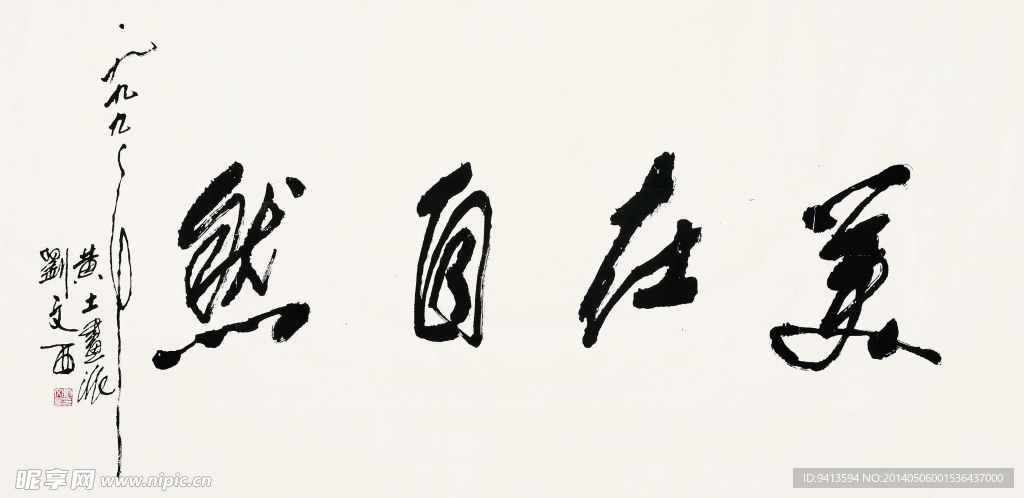 美在自然
一九九九年
黄土畫派
劉文西
昵享网 www.nipic.cn
ID:9413594 NO:20140506001536437000